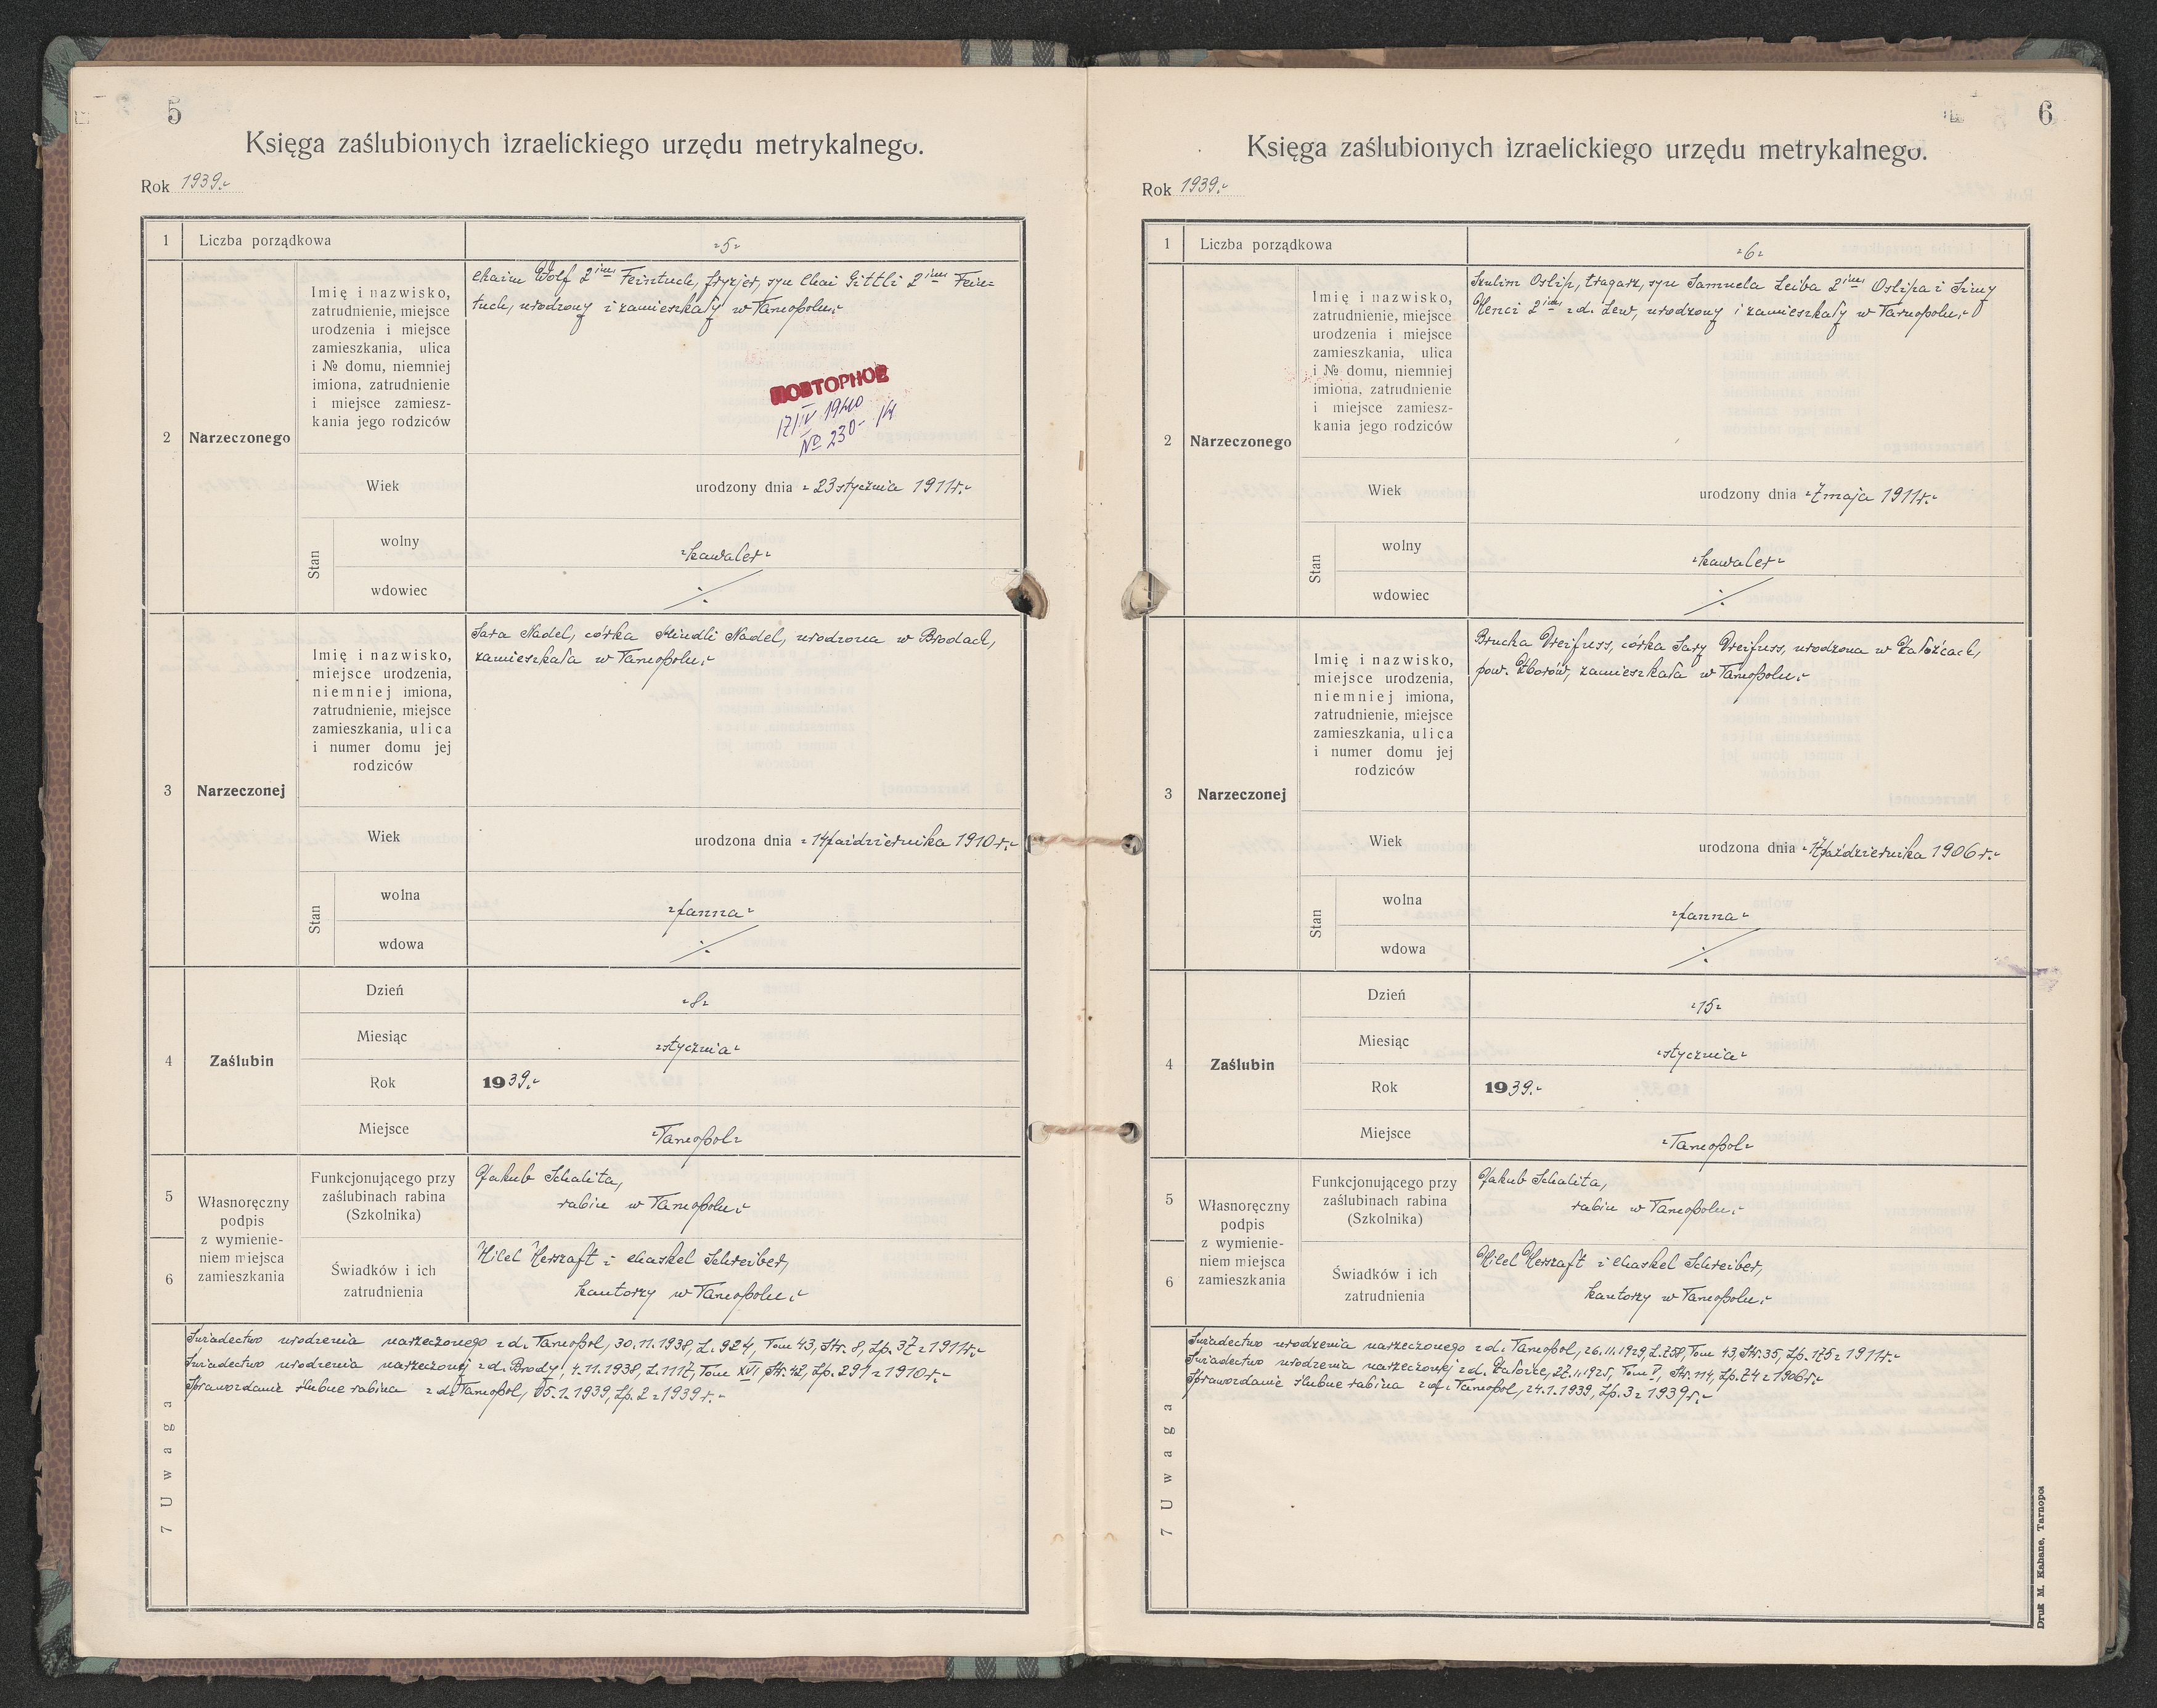 5
Księga zaślubionych izraelickiego urzędu metrykalnego.
Rok 1939.
1 Liczba porządkowa
5
2 Narzeczonego
Imię i nazwisko,
zatrudnienie, miejsce
urodzenia i miejsce
zamieszkania, ulica
i № domu, niemniej
imiona, zatrudnienie
i miejsce zamiesz-
kania jego rodziców
Chaim Wolf 2im Feintuch, fryzjer, syn Chai Gittli 2im Fein=
tuch, urodzony i zamieszkały w Tarnopolu.
ПОВТОРНОЕ
17/IV 1940
№ 230-
Wiek
urodzony dnia 23 stycznia 1911r.
Stan
wolny
kawaler
wdowiec
3 Narzeczonej
Imię i nazwisko,
miejsce urodzenia,
niemniej imiona,
zatrudnienie, miejsce
zamieszkania, ulica
i numer domu jej
rodziców
Sara Nadel, córka Mindli Nadel, urodzona w Brodach,
zamieszkała w Tarnopolu.
Wiek
urodzona dnia 14 października 1910r.
Stan
wolna
panna
wdowa
4 Zaślubin
Dzień
8
Miesiąc
stycznia
Rok
1939.
Miejsce
Tarnopol
5
6
Własnoręczny
podpis
z wymienie-
niem miejsca
zamieszkania
Funkcjonującego przy
zaślubinach rabina
(Szkolnika)
Jakub Schalita,
rabin w Tarnopolu.
Świadków i ich
zatrudnienia
Hilel Herszaft i Chaskel Schreiber,
kantorzy w Tarnopolu.
7 Uwaga
Świadectwo urodzenia narzeczonego z d. Tarnopol, 30.11.1938, L. 924, Tom 43, Str. 8, Lp. 37 z 1911r.
Świadectwo urodzenia narzeczonej z d. Brody, 4.11.1938, L. 1117, Tom XVI, Str. 42, Lp. 291 z 1910r.
Sprawozdanie ślubne rabina z d. Tarnopol, 15.1.1939, Lp. 2 z 1939r.
6
Księga zaślubionych izraelickiego urzędu metrykalnego.
Rok 1939.
1 Liczba porządkowa
6
2 Narzeczonego
Imię i nazwisko,
zatrudnienie, miejsce
urodzenia i miejsce
zamieszkania, ulica
i № domu, niemniej
imiona, zatrudnienie
i miejsce zamiesz-
kania jego rodziców
Szulim Oslip, tragarz, syn Samuela Leiba 2im Oslipa i Simy
Henci 2im z d. Lew, urodzony i zamieszkały w Tarnopolu.
Wiek
urodzony dnia 7 maja 1911r.
Stan
wolny
kawaler
wdowiec
3 Narzeczonej
Imię i nazwisko,
miejsce urodzenia,
niemniej imiona,
zatrudnienie, miejsce
zamieszkania, ulica
i numer domu jej
rodziców
Brucha Dreifuss, córka Sary Dreifuss, urodzona w Załoźcach,
pow. Zborów, zamieszkała w Tarnopolu.
Wiek
urodzona dnia października 1906r.
Stan
wolna
panna
wdowa
4 Zaślubin
Dzień
15
Miesiąc
stycznia
Rok
1939.
Miejsce
Tarnopol
5
6
Własnoręczny
podpis
z wymienie-
niem miejsca
zamieszkania
Funkcjonującego przy
zaślubinach rabina
(Szkolnika)
Jakub Schalita,
rabin w Tarnopolu.
Świadków i ich
zatrudnienia
Hilel Herszaft i Chaskel Schreiber,
kantorzy w Tarnopolu.
7 Uwaga
Świadectwo urodzenia narzeczonego z d. Tarnopol, 26.11.1929, L. 758, Tom 43, Str. 35, Lp. 175 z 1911r.
Świadectwo urodzenia narzeczonej z d. Załoźce, 27.11.1925, Tom I, Str. 114, Lp. 74 z 1906r.
Sprawozdanie ślubne rabina z d. Tarnopol, 24.1.1939, Lp. 3 z 1939r.
Druk M. Kahane, Tarnopol